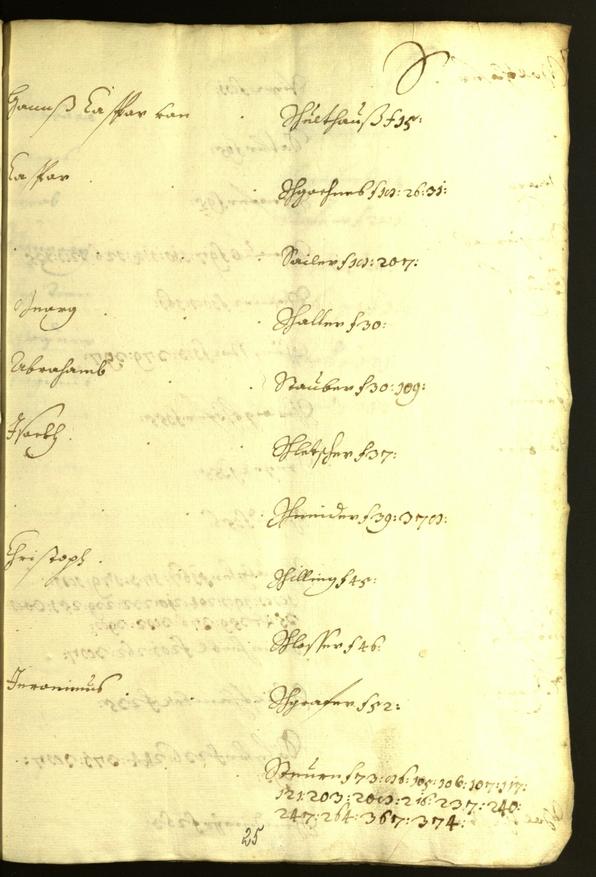 S
Hannß Caspar von Schulthauß f 15:
Caspar Schgoehneb f 19: 26: 31:
Sailer f 19: 207:
Georg Schaller f 30:
Abrahamb Stauber f 30: 109:
Schletscher f 37:
Schneider f 39: 370:
Christoph Schilling f 45:
Schlosser f 46
Jeronimus Schgrafer f 52:
Steurn f 73: 96: 105: 106: 107: 117:
121: 203: 209: 216: 237: 240:
247: 264: 367: 374:
25